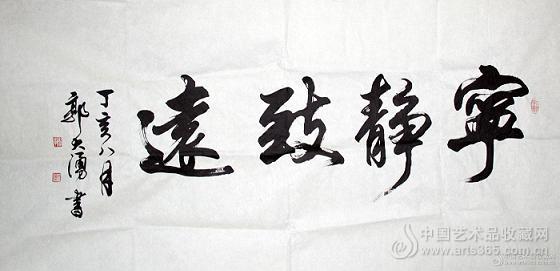 寧靜致遠
丁亥八月
郭大勇書
中国艺术品收藏网
www.arts363.com